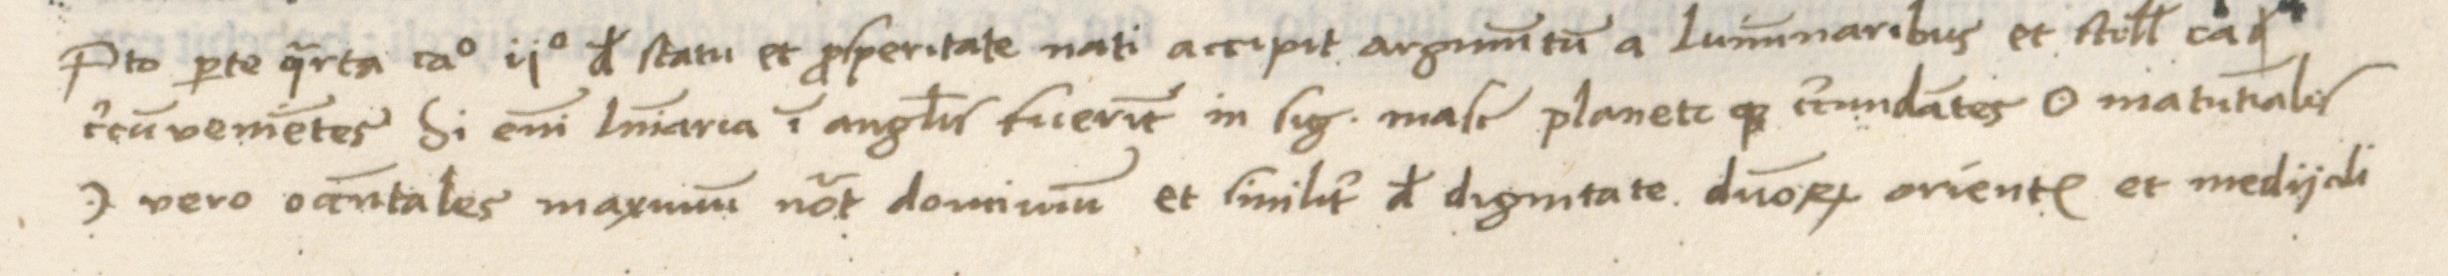 Pto perte q̄rta ca° ij° đ statu et ꝓsperitate nati accipit argumētū a Luminaribus et stellꝭ ea
cr̄cūveniētes Si enī lūiaria ī angłis fuerīt in sig. masc planete qꝫ cr̄cundātes ☉ matutīales
☽ vero occītales maximū nōt dominiū et similit̄ đ dignitate. duoꝝ orientꝭ et medij celi